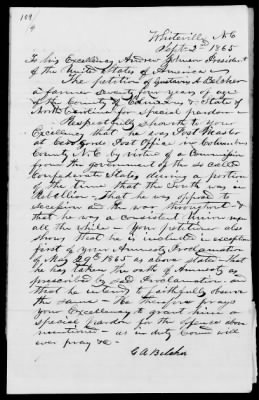 109
Whiteville N.C
Sept. 2nd 1865
To his Excellency Andrew Johnson President
of the United States of America
The petition of Gustavus A. Belcher
a farmer seventy four years of age
of the County of Columbus & State of
North Carolina for Special pardon
Respectfully sheweth to your
Excellency that he was Post Master
at Post Office in Columbus
County N.C by virtue of a Commission
from the government of the so called
Confederate States during a portion
of the time that the South was in
Rebellion that he was opposed to
secession & the war throughout &
that he was a consistent Union man
all the while - Your petitioner also
shows that he is included in exception
first of your Amnesty Proclamation
of May 29th 1865 as above stated that
he has taken the oath of Amnesty as
prescribed by said Proclamation and
that he intends to faithfully observe
the same - He therefore prays
your Excellency to grant him a
special pardon for the offence above
mentioned - as in duty bound will
ever pray &c -
G A Belcher